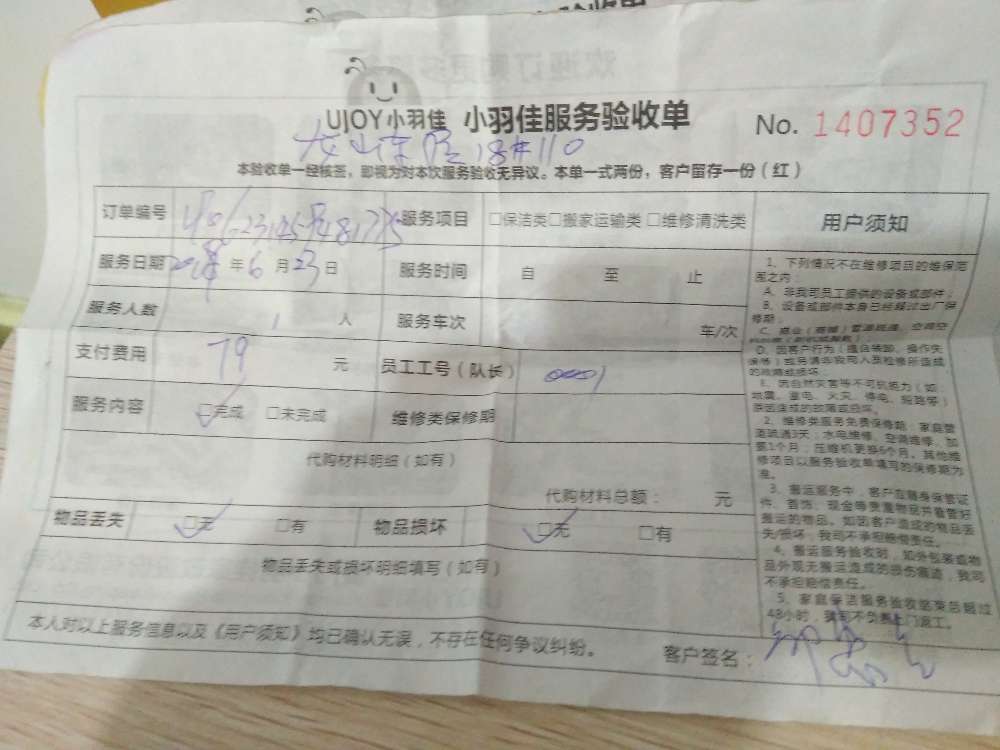 UJOY小羽佳 小羽佳服务验收单 No. 1407352
18#110
本验收单一经核签，即视为对本次服务验收无异议。本单一式两份，客户留存一份（红）
订单编号 服务项目 □保洁类□搬家运输类 □维修清洗类 用户须知
服务日期 年 6 月 23 日 服务时间 自 至 止
服务人数 1 人 服务车次 车/次
支付费用 79 元 员工工号（队长） 0001
服务内容 □完成 □未完成 维修类保修期
代购材料明细（如有）
代购材料总额： 元
物品丢失 □无 □有 物品损坏 □无 □有
物品丢失或损坏明细填写（如有）
本人对以上服务信息以及《用户须知》均已确认无误，不存在任何争议纠纷。
客户签名：
1、下列情况不在维修项目的维保范
围之内：
A、非我司员工提供的设备或部件；
B、设备或部件本身已经超过出厂保
修期；
D、因客户行为（擅自装卸、操作失
的故障或损坏；
E、因自然灾害等不可抗力（如：
地震、雷电、火灾、停电、短路等）
原因造成的故障或损坏。
2、维修类服务免费保修期：家庭管
道疏通3天；水电维修、空调维修、加
氟1个月；压缩机更换6个月。其他维
修项目以服务验收单填写的保修期为
准。
3、搬运服务中，客户应随身保管证
件、首饰、现金等贵重物品并看管好
搬运的物品。如因客户造成的物品丢
失/损坏，我司不承担赔偿责任。
4、搬运服务验收时，如外包装或物
品外观无搬运造成的损伤痕迹，我司
不承担赔偿责任。
5、家庭保洁服务验收结束后超过
48小时，我司不负责上门返工。